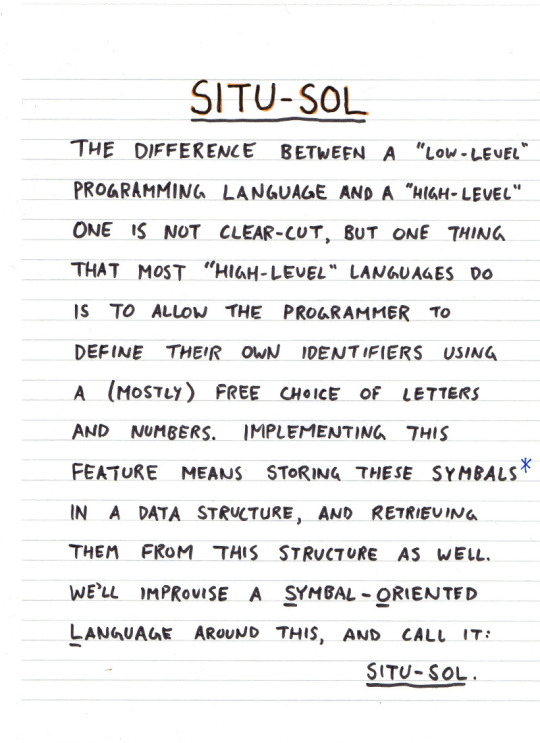 SITU-SOL
THE DIFFERENCE BETWEEN A "LOW-LEVEL"
PROGRAMMING LANGUAGE AND A "HIGH-LEVEL"
ONE IS NOT CLEAR-CUT, BUT ONE THING
THAT MOST "HIGH-LEVEL" LANGUAGES DO
IS TO ALLOW THE PROGRAMMER TO
DEFINE THEIR OWN IDENTIFIERS USING
A (MOSTLY) FREE CHOICE OF LETTERS
AND NUMBERS. IMPLEMENTING THIS
FEATURE MEANS STORING THESE SYMBALS*
IN A DATA STRUCTURE, AND RETRIEVING
THEM FROM THIS STRUCTURE AS WELL.
WE'LL IMPROVISE A SYMBAL-ORIENTED
LANGUAGE AROUND THIS, AND CALL IT:
SITU-SOL.